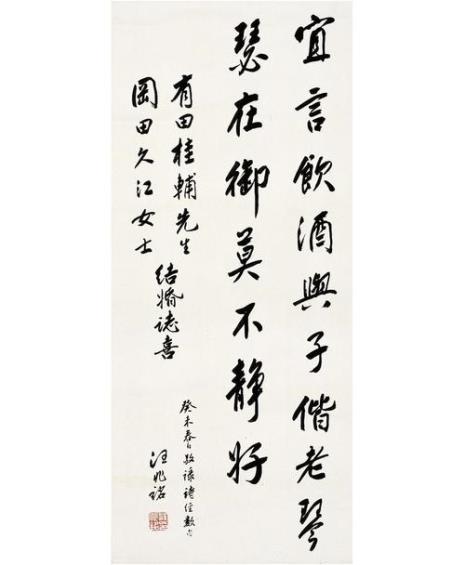 宜言飲酒與子偕老琴
瑟在御莫不靜好
有田桂輔先生
岡田久江女士
結婚誌喜
癸未春日敬錄詩經數句
汪兆銘